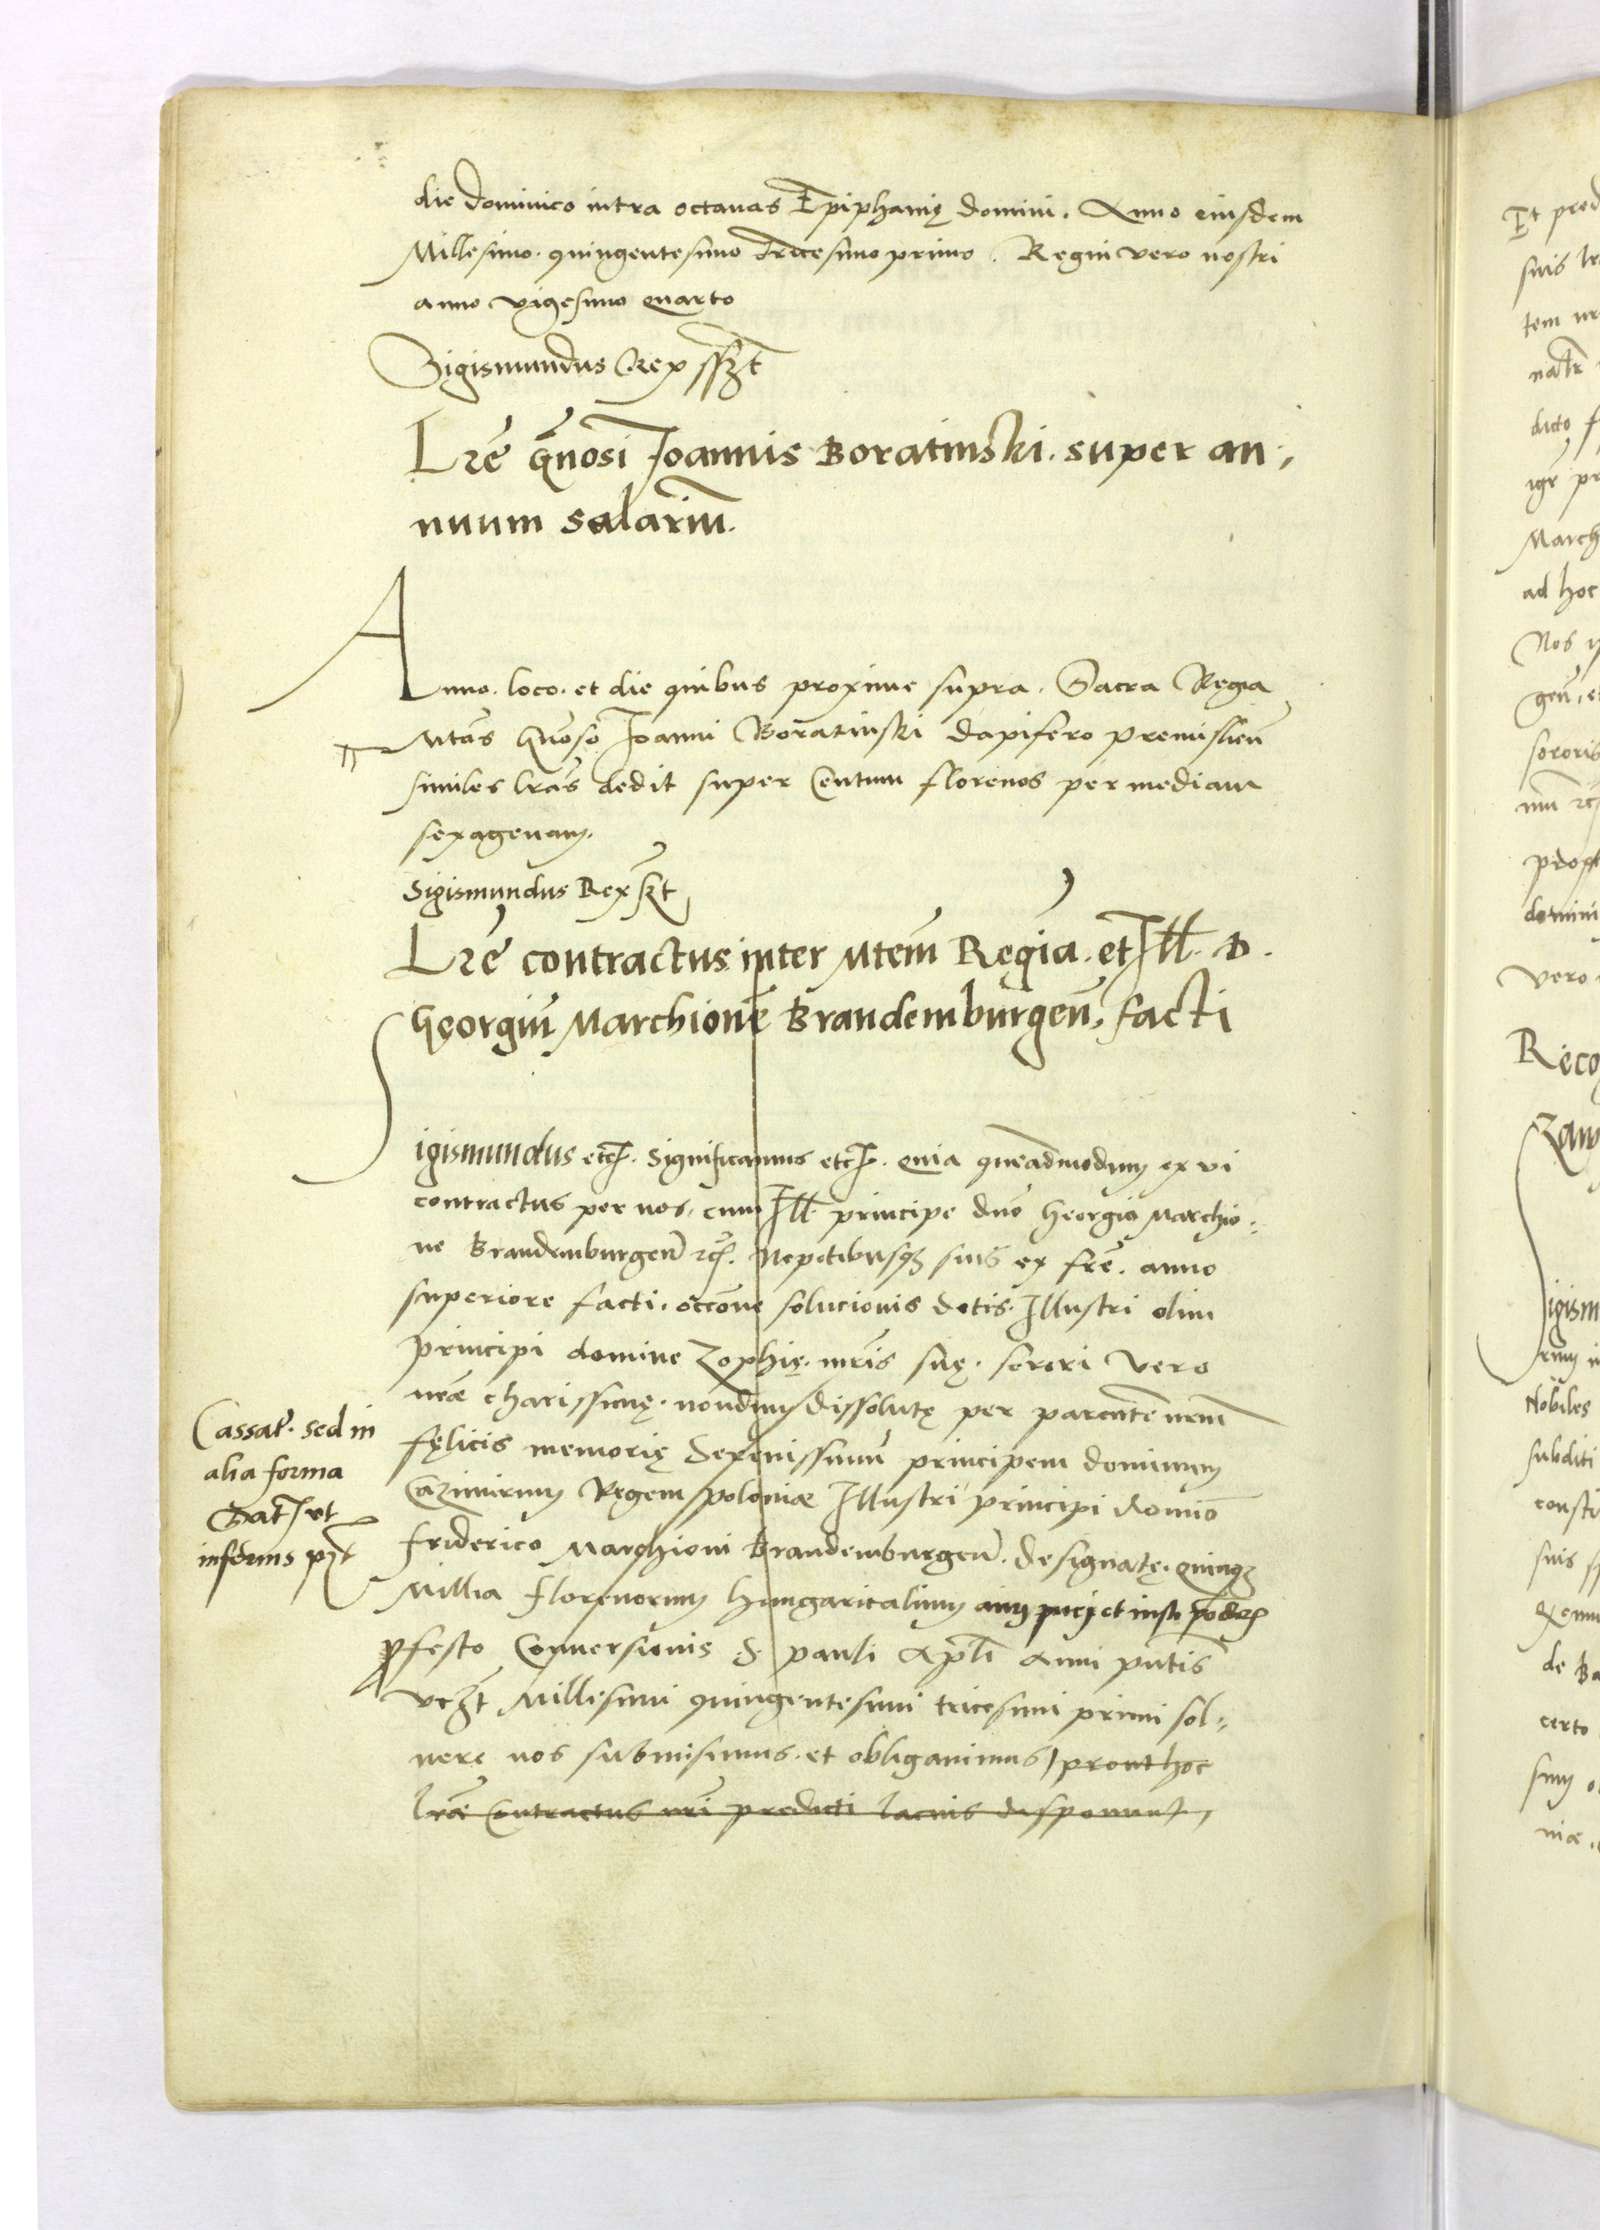 die dominico intra octauas Epiphanię domini. Anno eiusdem
Millesimo. quingentesimo tricesimo primo. Regni vero nostri
anno vigesimo quarto
Sigismundus Rex sszt
Lrē Gnosi Joannis Boratinski. super an:,
nuum salariū.
Anno. loco. et die quibus proxime supra. Sacra Regia
Mtas Gnoso Joanni Boratinski dapifero Premislien
similes lras dedit super Centum florenos per mediam
sexagenam.
Sigismundus Rex szt
Lrē contractus inter Mtem Regiā. et Ill. D.
Georgiū Marchionē Brandemburgen, facti
Sigismundus etc. Significamus etc. quia queadmodum ex vi
contractus per nos, cum Ill. principe dno Georgio Marchio:,
ne Brandemburgen rc. Nepotibusq suis ex fre. anno
superiore facti. occone solucionis dotis. Illustri olim
principi domine Zophię. mris suę. sorori vero
nræ charissimę. nondum dissolutę per parentē nrm
fęlicis memorię Serenissimū principem dominum
Cazimirum Regem Poloniæ Illustri principi domino
Friderico Marchioni Brandemburgen. designatę. quinq
Millia florenorum hungaricalium auri puri et iusti ponderis
p festo Conuersionis S. Pauli Apli Anni pntis
vczt Millesimi quingentesimi tricesimi primi sol:,
uere nos submisimus. et obligauimus, prout hoc
lræ Contractus nri predicti lacius disponunt,
Cassat. sed in
alia forma
et
inferius
Et pred
suis
tem
dicto
March
ad hoc
Nos
sororis
domini
vero
Reco
igism
Nobiles
subditi
consti
suis
de Ba
certo